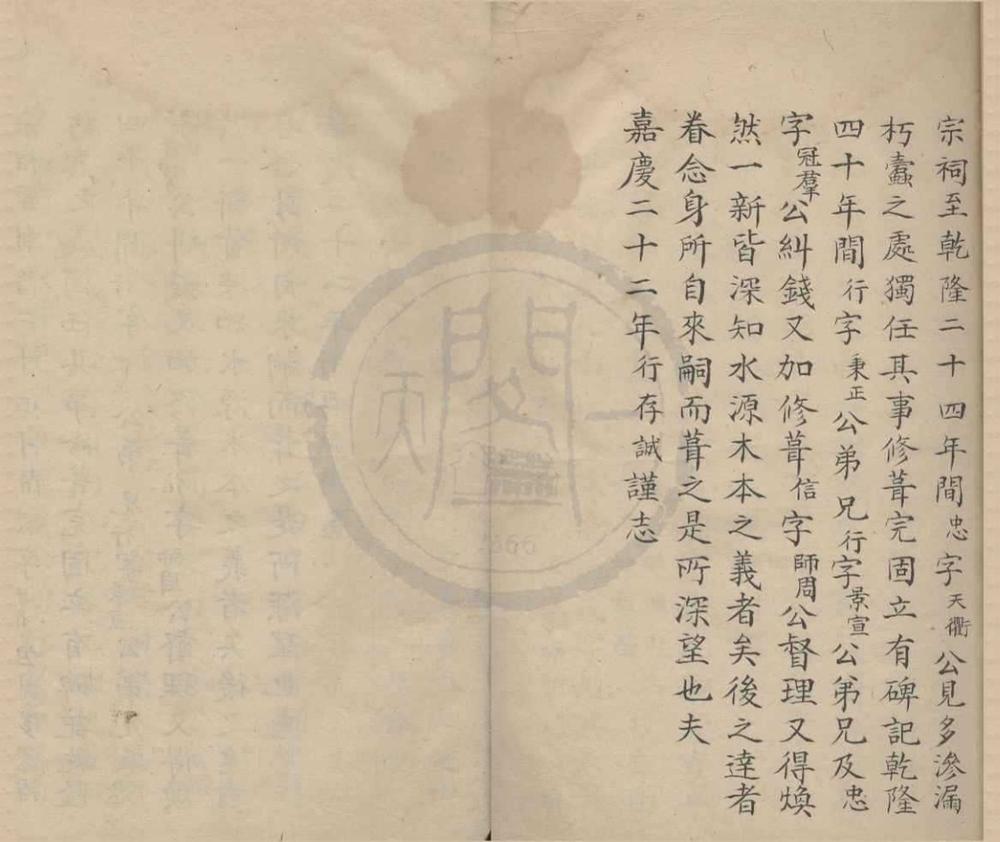 宗祠至乾隆二十四年間忠字天衢公見多滲漏
朽蠹之處獨任其事修葺完固立有碑記乾隆
四十年間行字秉正公弟兄行字景宣公弟兄及忠
字冠羣公糾錢又加修葺信字師周公督理又得煥
然一新皆深知水源木本之義者矣後之達者
眷念身所自來嗣而葺之是所深望也夫
嘉慶二十二年行存誠謹志